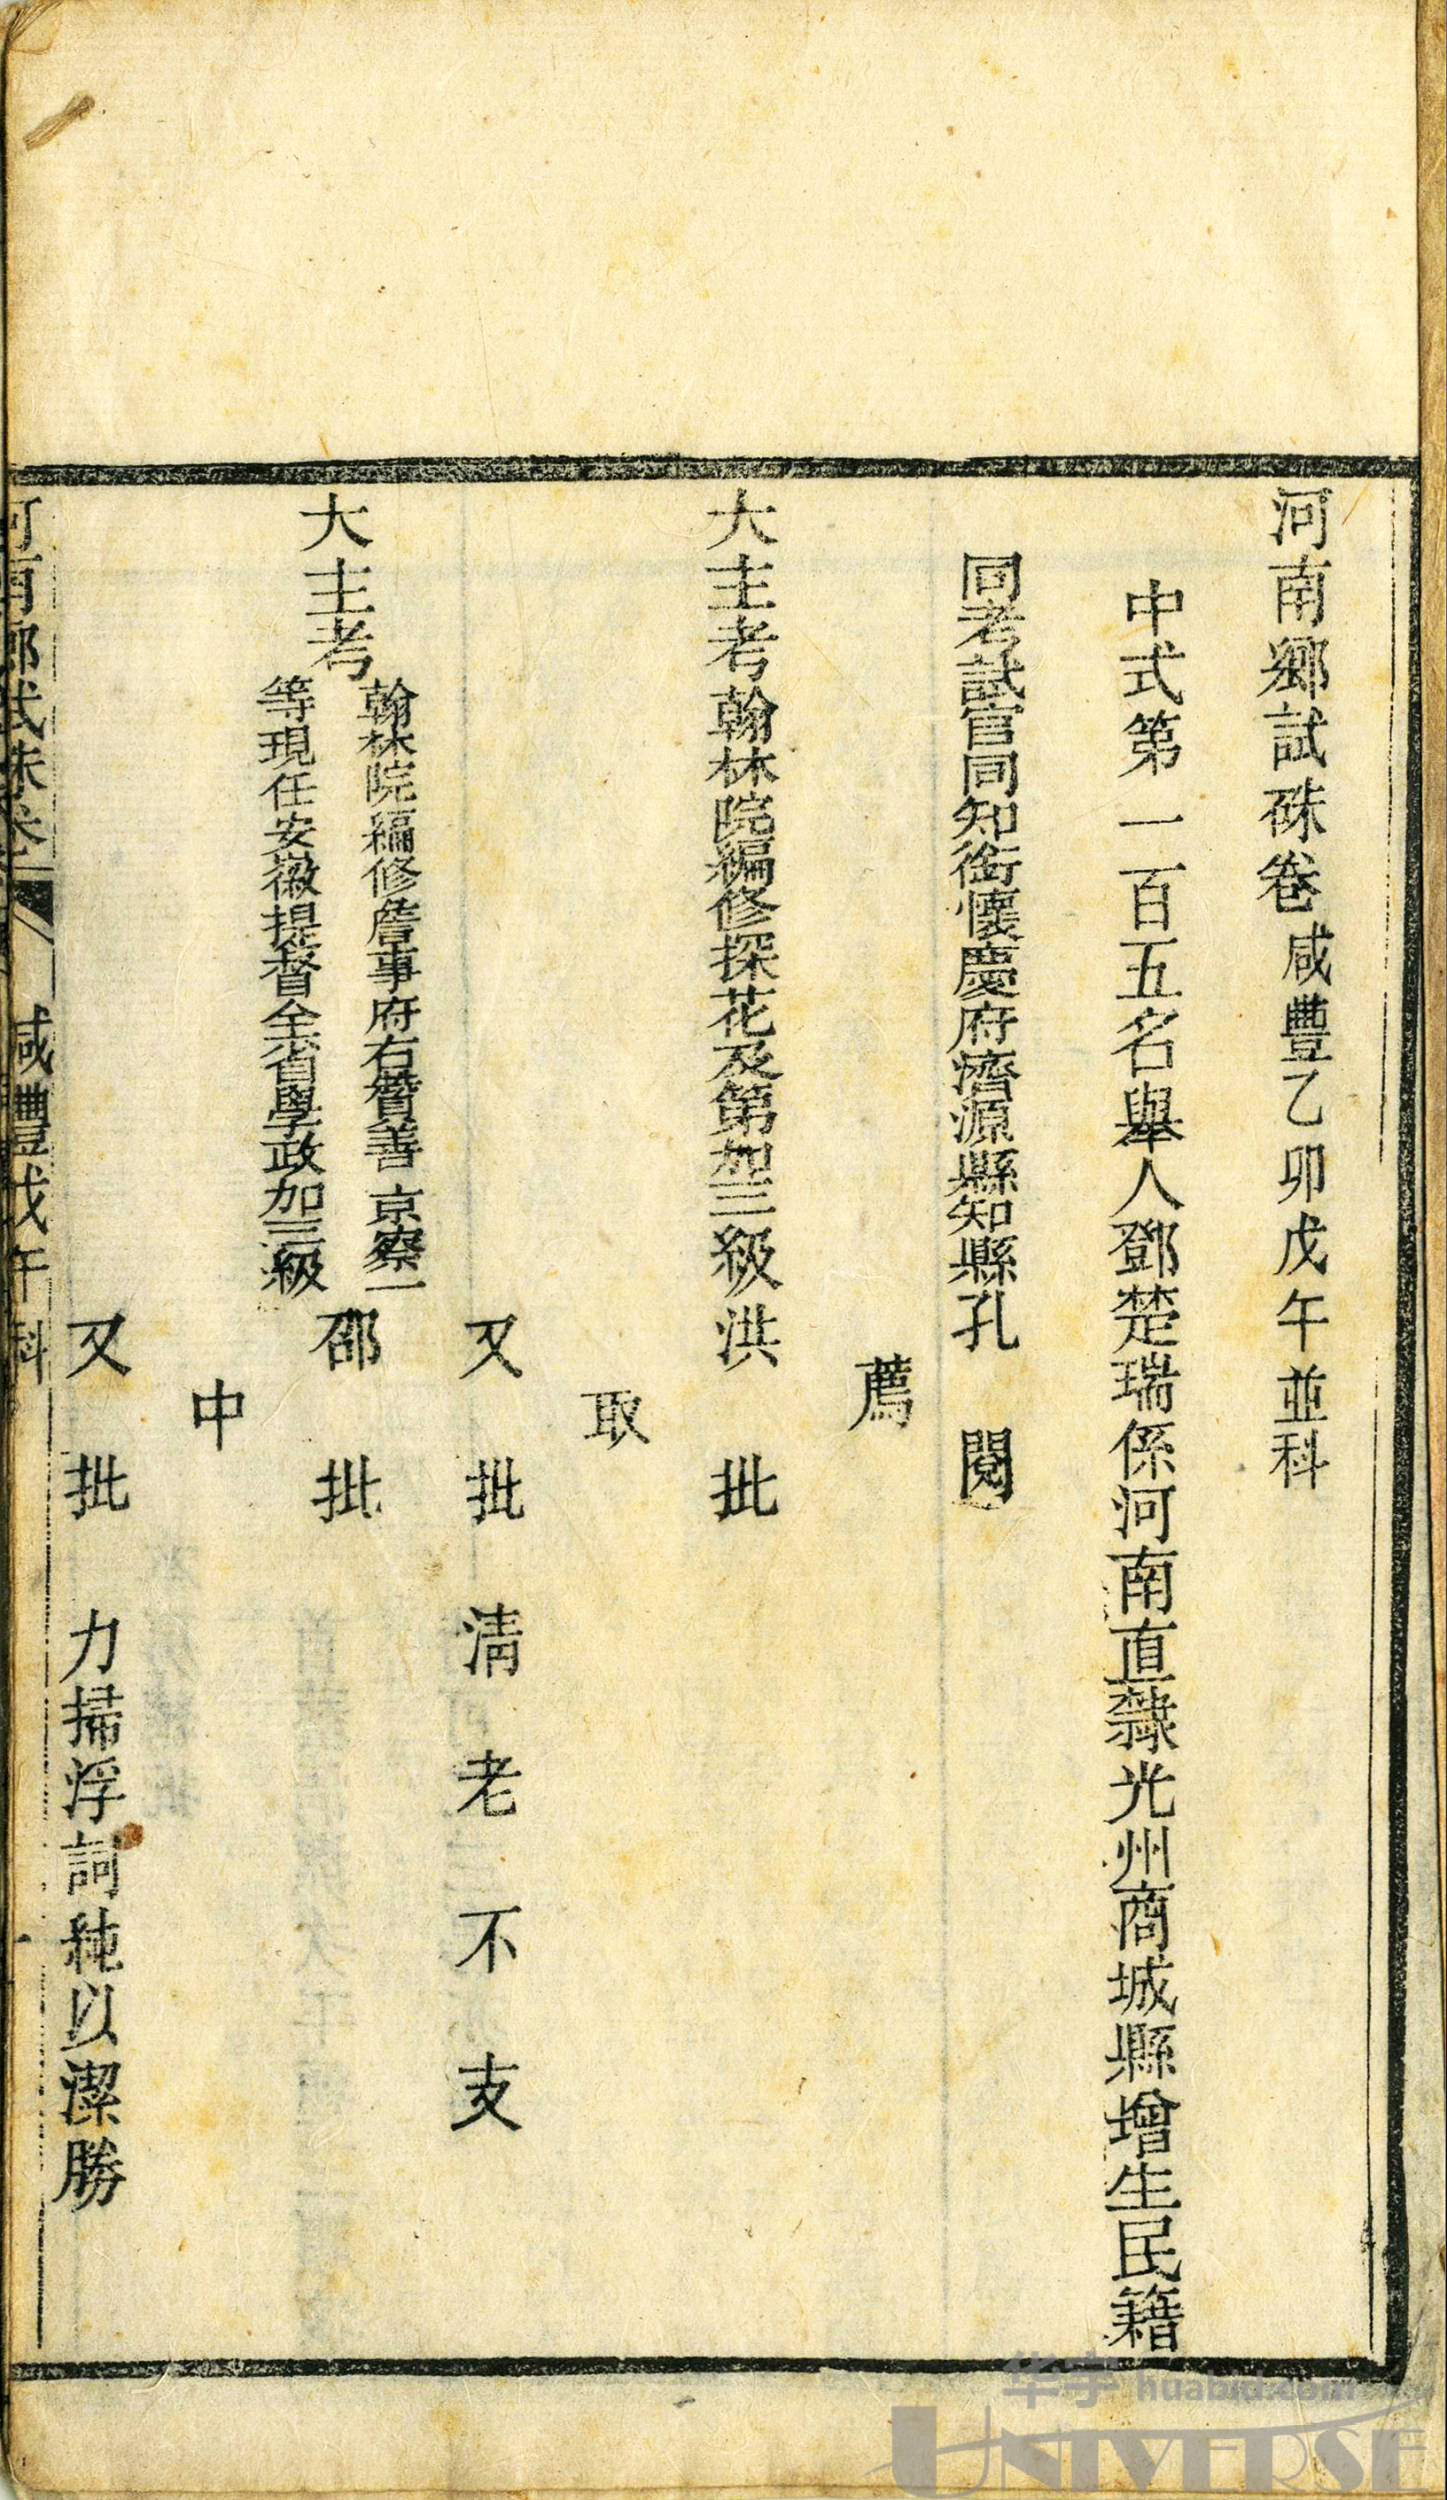 河南鄉試硃卷咸豐乙卯戊午並科
中式第一百五名舉人鄧楚瑞係河南直隸光州商城縣增生民籍
同考試官同知銜懷慶府濟源縣知縣孔 閱
薦
大主考翰林院編修探花及第加三級洪 批
取
又批 清老不支
大主考翰林院編修詹事府右贊善 京察一
等現任安徽提督全省學政加三級 邵 批
中
又批 力掃浮詞純以潔勝
河南鄉試硃卷 咸豐戊午科 一
华宇 huabid.com
UNIVERSE